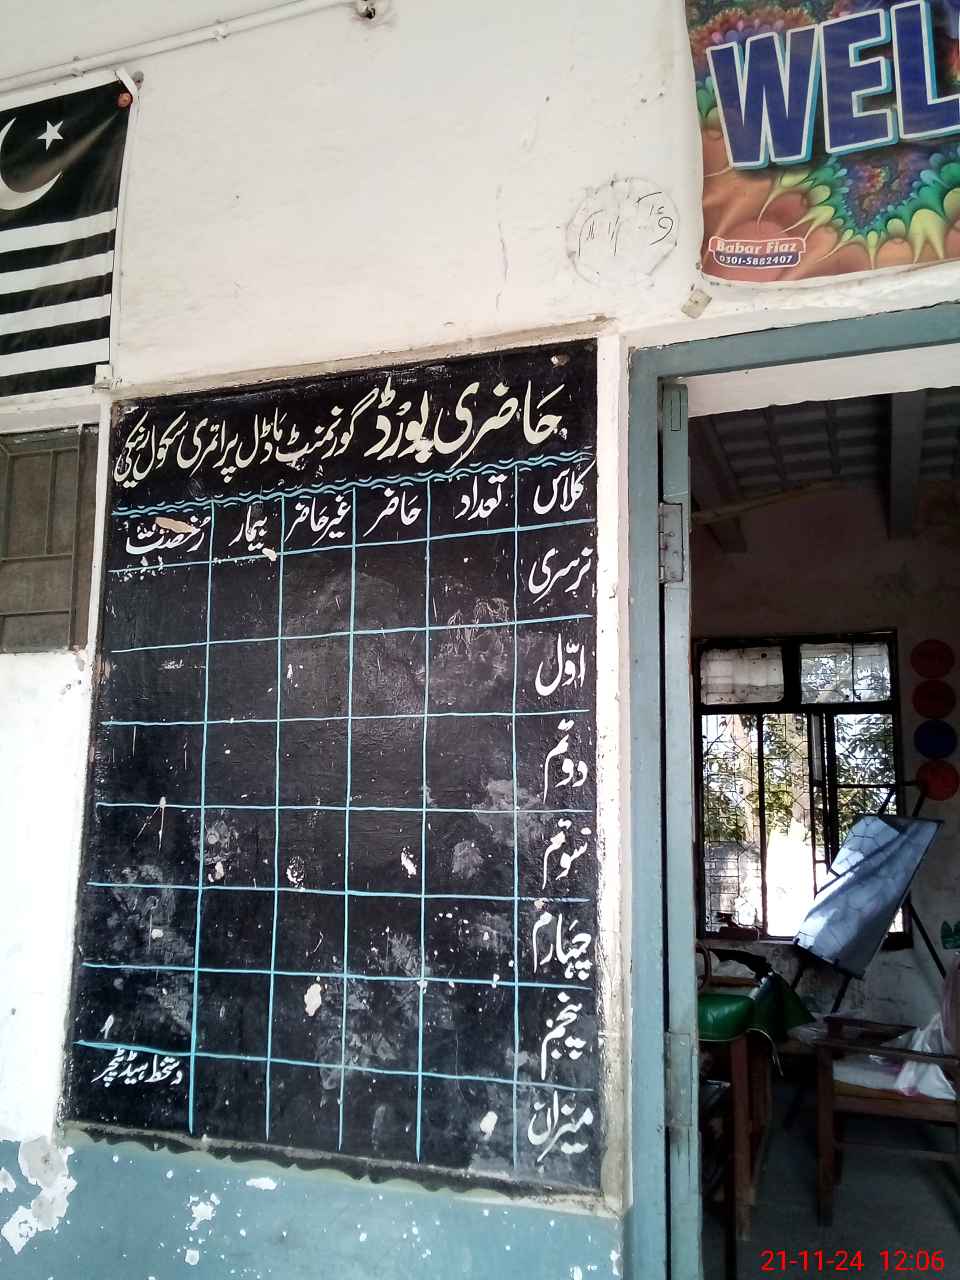 WEL
Babar Fiaz
0301-5882407
حاضری بورڈ گورنمنٹ ماڈل پرائمری سکول
کلاس تعداد حاضر غیر حاضر بیمار رخصت
نرسری
اوّل
دوئم
سوئم
چہارم
پنجم
میزان
دستخط ہیڈ ٹیچر
21-11-24 12:06